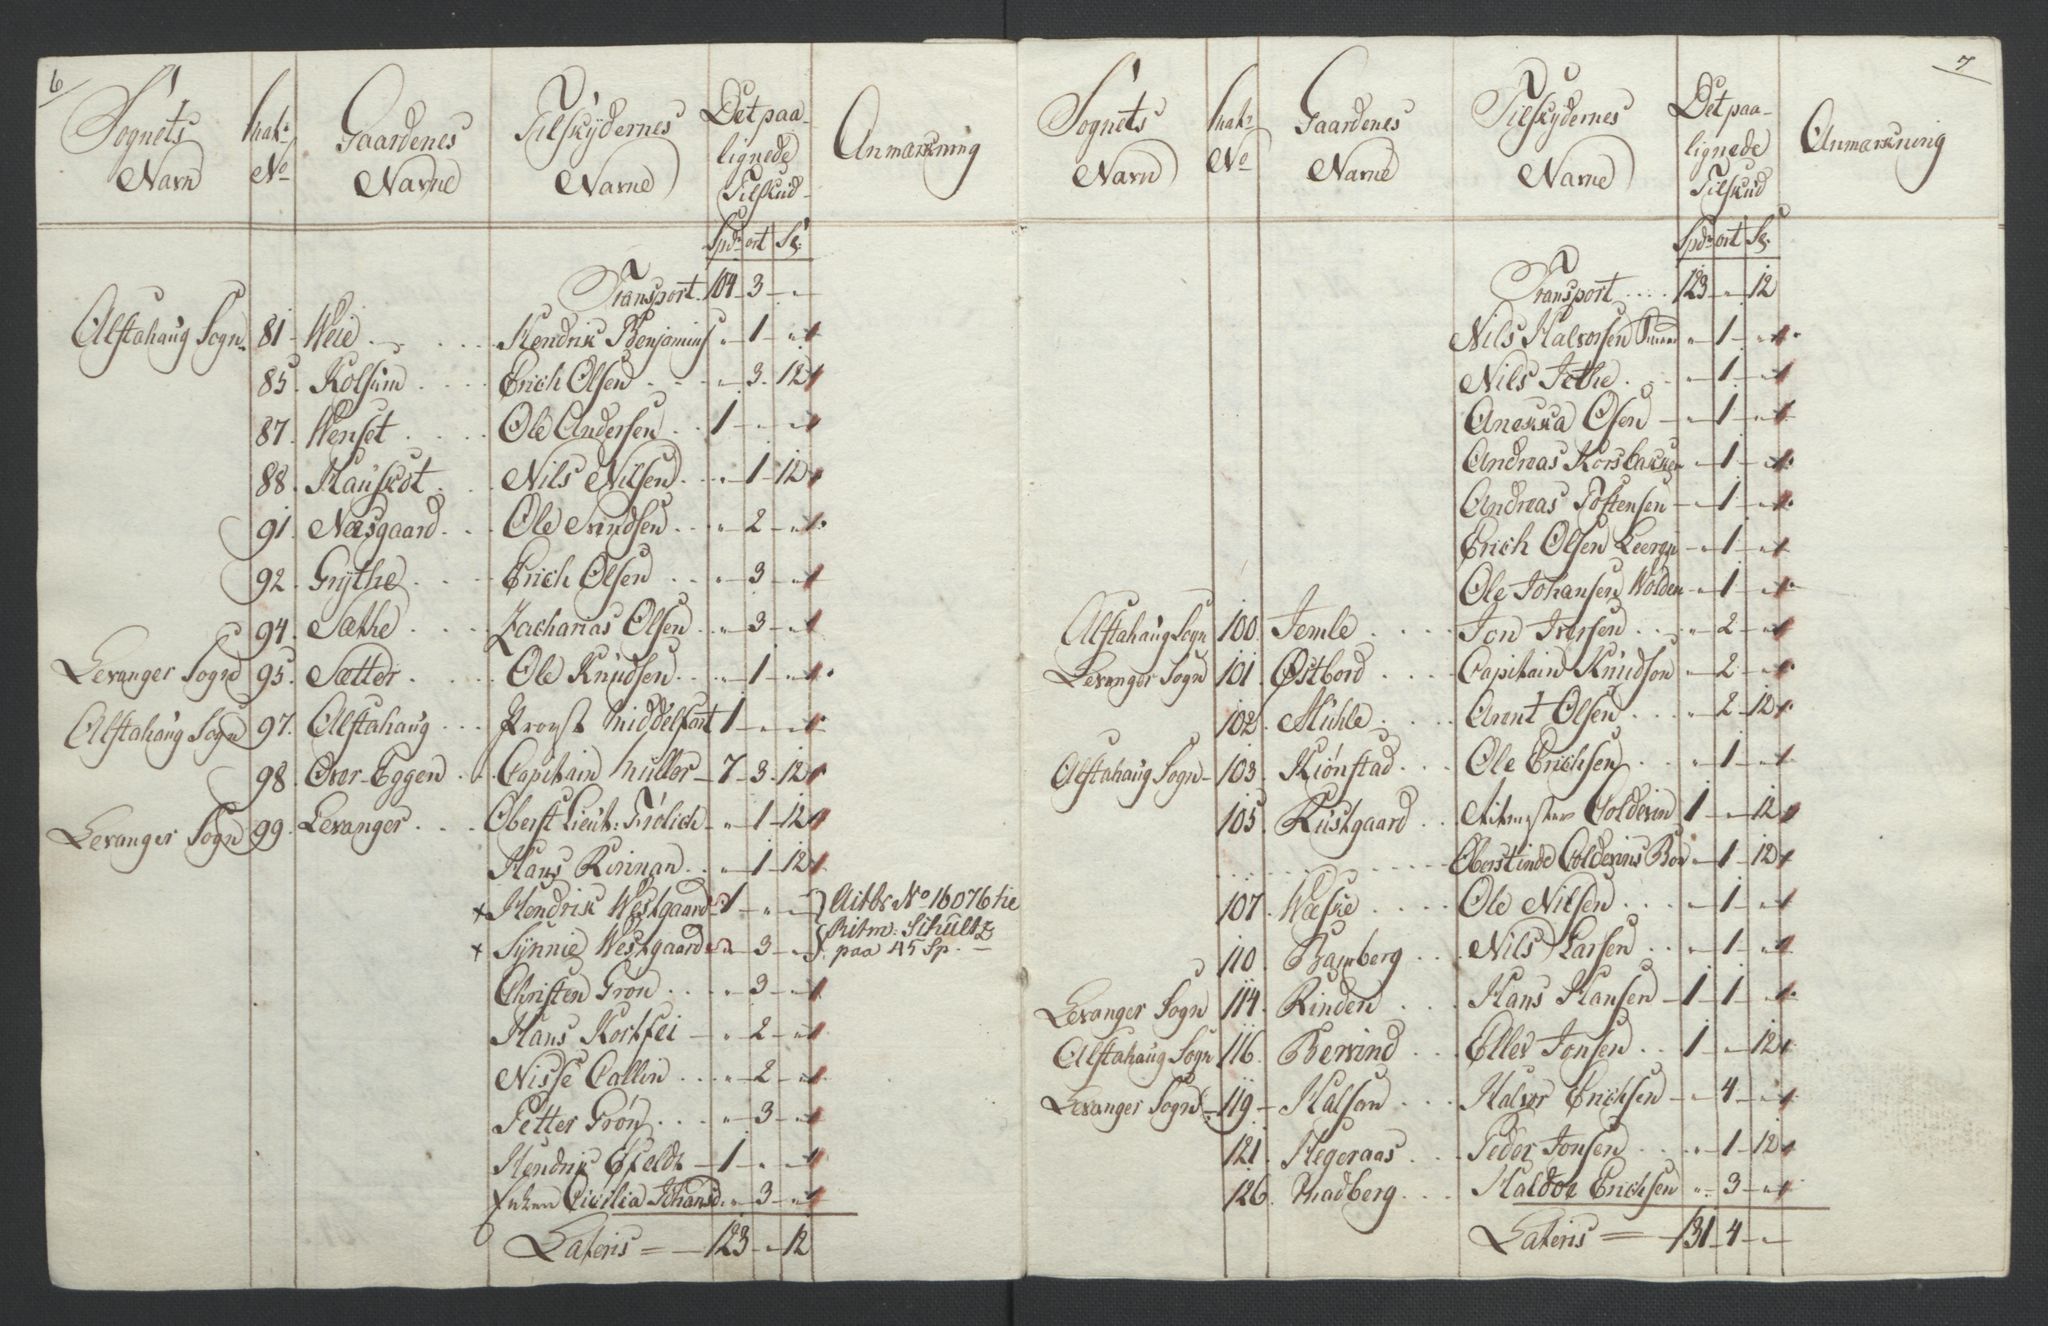 6
Sognets Navn | Matr: No | Gaardenes Navne | Tilskydernes Navne | Det paalignede Tilskud | Anmærkning
Spd: ort Sk:
Transport. 104 - 3 - "
Alstahaug Sogn. 81 - Weie . . . Hendrik Benjamins " - 1 - "
85. Kolsum . . . Erich Olsen . . . " - 3 - 12
87. Wenset . . . Ole Andersen . . 1 - " - "
88. Hauskot . . . Nils Nilsen . . " - 1 - 12
91. Næsgaard . . . Ole Svindsen . . " - 2 - "
92. Grythe . . . Erich Olsen . . " - 3 - "
94. Sæthe . . . Zacharias Olsen . . " - 3 - "
Levanger Sogn 95. Sætter . . . Ole Knudsen . . " - 1 - "
Alstahaug Sogn 97. Alstahaug . . . Provst Middelfart 1 - " - "
98. Over-Eggen . . . Capitain Müller - 7 - 3 - 12
Levanger Sogn 99. Levanger . . . Oberst Lieut: Frölich - " - 1 - 12
Hans Rinnan . . " - 1 - 12
+ Hendrik Westgaard - 1 - " - " Qitbr No 16076 tie
Ritm: Schultz
+ Synnie Westgaard " - 3 - " paa 45 Sp.
Christen Grøn . . . " - 3 - "
Hans Kortfei - " - 2 - "
Nisse Callin . . . " - 2 - "
Petter Grön . . . " - 3 - "
Hendrik Øfeldt - 1 - " - "
Enken Cicilia Johansd. " - 3 - "
Lateris = - 123 - " - 12
7
Sognets Navn | Matr: No | Gaardenes Navne | Tilskydernes Navne | Det paalignede Tilskud | Anmærkning
Spd: ort Sk:
Transport . . . . 123 - " - 12
Nils Halvorsen " - 1 - "
Nils Jethe . . . " - 1 - "
Anekka Olsen - " - 1 - "
Andreas Korsbakken - 1 - "
Andreas Toftensen - " - 1 - "
Erich Olsen Leeren - " - 1 - "
Ole Johansen Wolden " - 1 - "
Alstahaug Sogn 100. Jemle . . . Jon Iversen . . . " - 2 - "
Levanger Sogn 101. Østbord . . . Capitain Knudson " - 2 - "
102. Mühle . . . Arent Olsen . . . " - 2 - 12
Alstahaug Sogn - 103. Kiönstad . . . Ole Erichsen . . " - 1 - "
105. Rustgaard . . Ritmester Coldevin 1 - " - 12
Oberstinde Coldevins Bo " - 1 - 12
107. Wæske . . . Ole Nilsen . . . " - 1 - "
110. Bamberg . . . Nils Larsen . . " - 1 - "
Levanger Sogn 114. Rinden . . . Hans Hansen - 1 - 1 - "
Alstahaug Sogn 116. Bervind . . . Ellev Jonsen . . 1 - " - 12
Levanger Sogn - 119 - Halson . . . Halvor Erichsen - " - 4 - "
121. Hegeraas . . . Peder Jonsen . . . " - 1 - 12
126. Madberg . . . Haldor Erichsen " - 3 - "
Lateris = - 131 - 4 - "